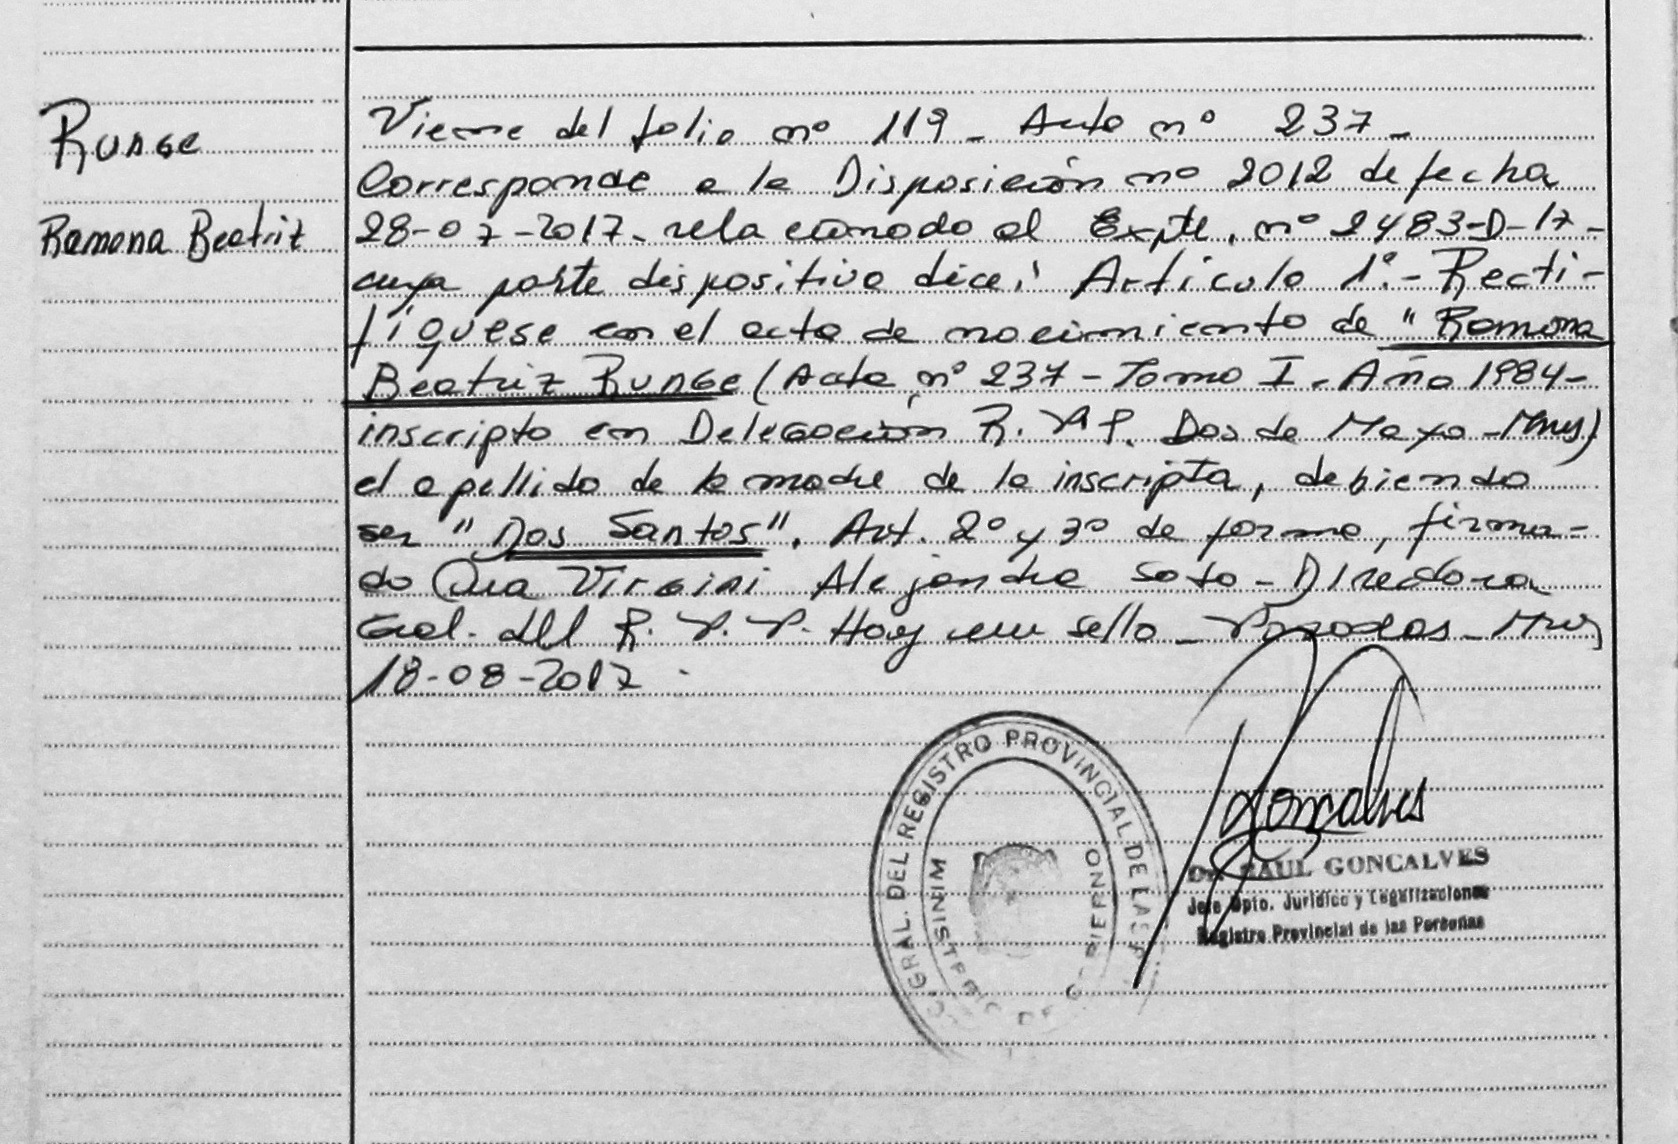 Runge
Ramona Beatriz
Viene del folio nº 119 - Acta nº 237 -
Corresponde a la Disposición nº 2012 de fecha
28-07-2017- relacionado al Expte, nº 2483-D-17-
cuya parte dispositiva dice: Artículo 1º.- Recti-
fíquese en el acta de nacimiento de "Ramona
Beatriz Runge (Acta nº 237 - Tomo I - Año 1984-
inscripta en Delegación R. P. Dos de Mayo - Mnes)
el apellido de la madre de la inscripta, debiendo
ser "Dos Santos". Art. 2º y 3º de forma, firma-
do Dra Virgini Alejandra Soto - Directora
Gral. del R. P. P. Hay un sello - Posadas - Mnes
18-08-2017 -
GRAL. DEL REGISTRO PROVINCIAL DE LAS P
MINISTERIO DE GOBIERNO
Goncalves
Dr. RAUL GONCALVES
Jefe Dpto. Jurídico y Legalizaciones
Registro Provincial de las Personas